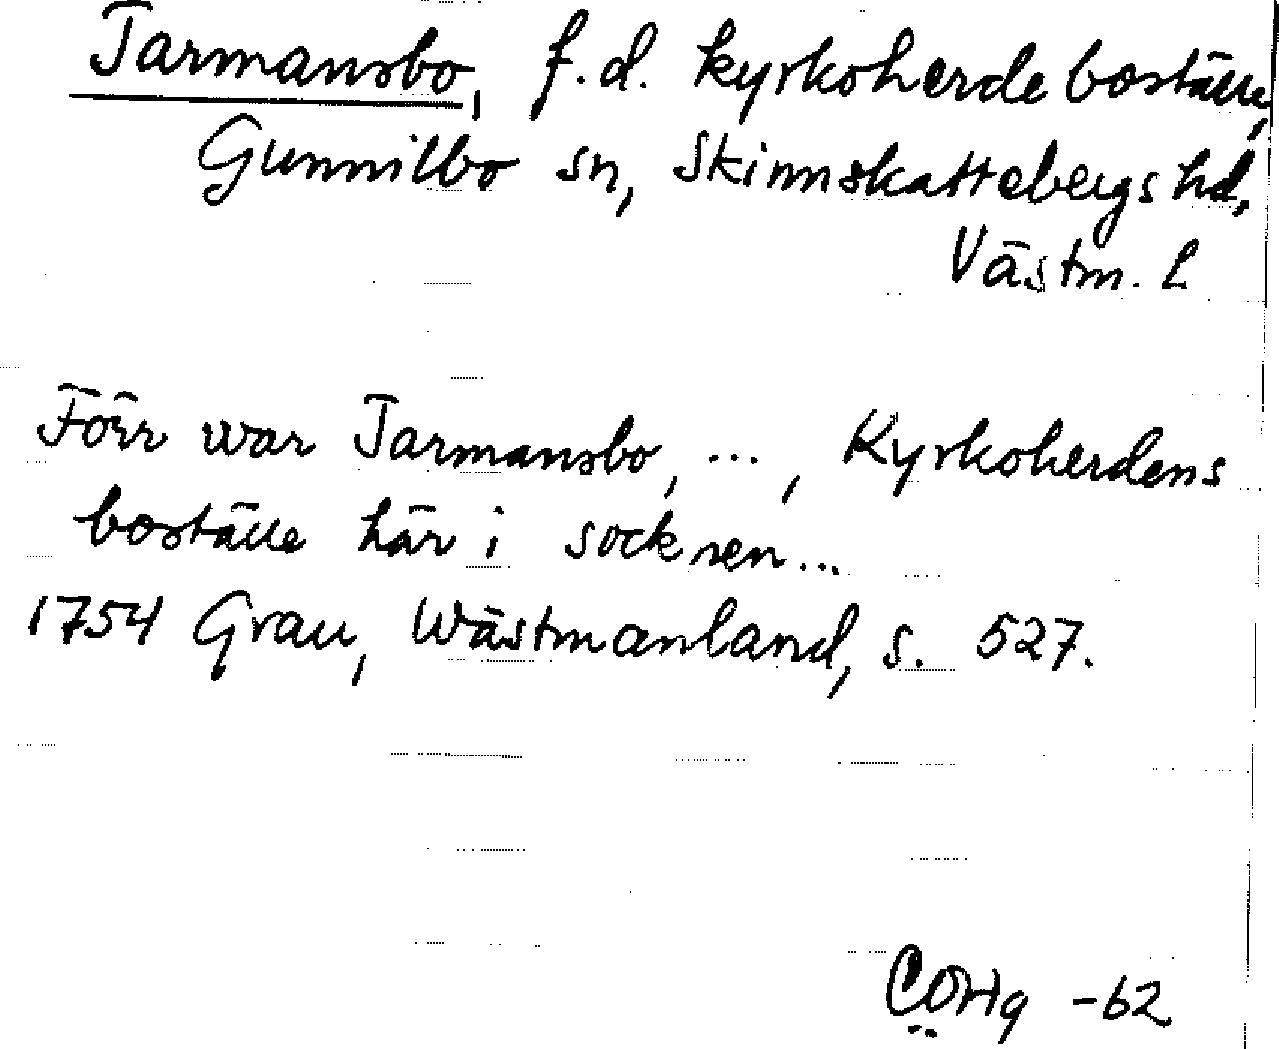 Tarmansbo, f.d. kyrkoherdeboställe,
Gunnilbo sn, Skinnskattebergs hd,
Västm. L
Förr war Tarmansbo, ..., Kyrkoherdens
boställe här i socknen...
1754 Grau, Wästmanland, s. 527.
CÖHg -62